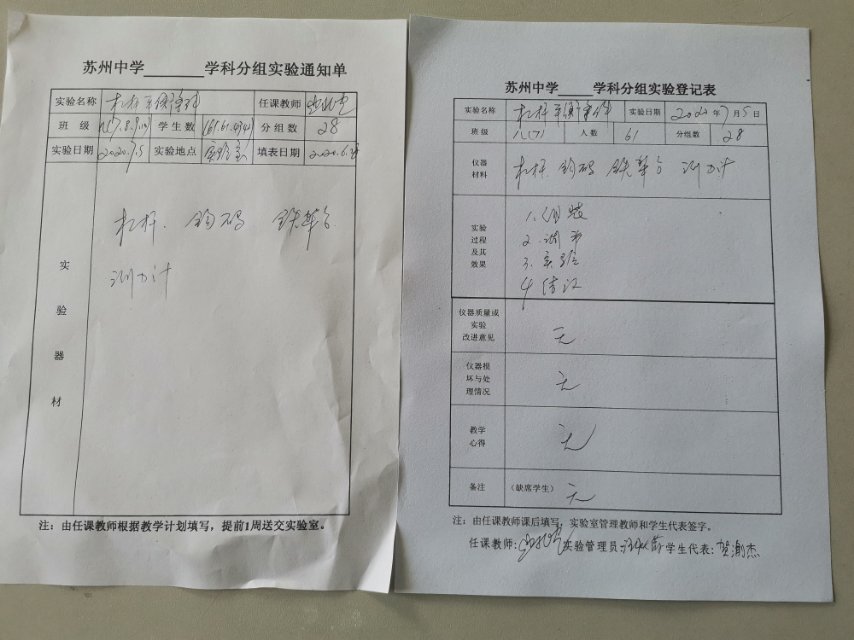 苏州中学______学科分组实验通知单
实验名称 杠杆平衡条件 任课教师
班 级 学生数 分组数 28
实验日期 2020.7.5 实验地点 实验室 填表日期 2020.6.28
实验器材
杠杆. 钩码 铁架台
测力计
注：由任课教师根据教学计划填写，提前1周送交实验室。
苏州中学____学科分组实验登记表
实验名称 杠杆平衡条件 实验日期 2020年7月5日
班 级 八(7) 人 数 61 分组数 28
仪器材料 杠杆 钩码 铁架台 测力计
实验过程及其效果
1. 组装
2. 调节
3. 实验
4. 结论
仪器质量或实验改进意见 无
仪器损坏与处理情况 无
教学心得 无
备注 (缺席学生) 无
注：由任课教师课后填写，实验室管理教师和学生代表签字。
任课教师: 实验管理员: 学生代表: